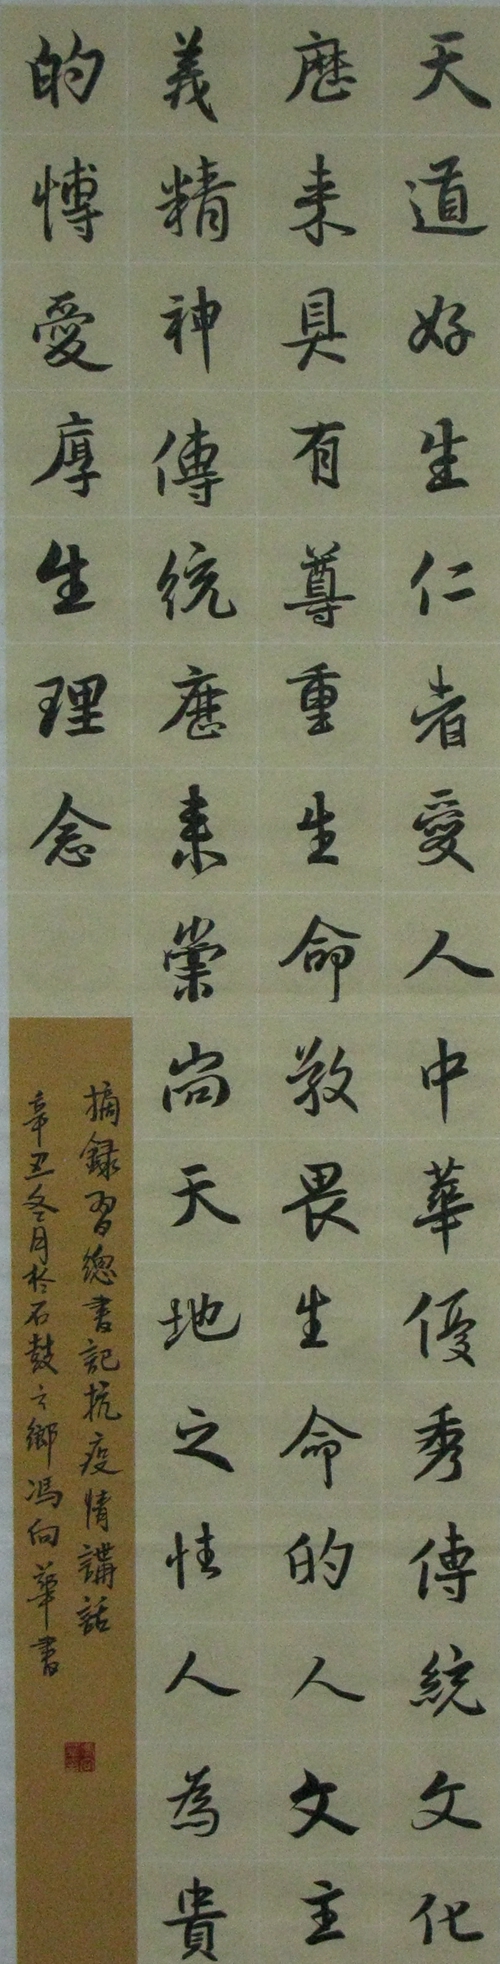 天道好生仁者愛人中華優秀傳統文化
歷来具有尊重生命敬畏生命的人文主
義精神傳統歷来崇尚天地之性人為貴
的博愛厚生理念
摘録習總書記抗疫情講話
辛丑冬月於石鼓之鄉馮向華書